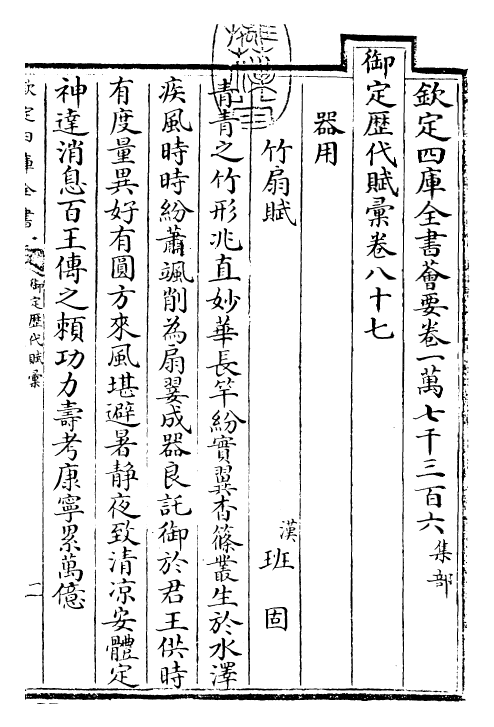 欽定四庫全書薈要卷一萬七千三百六 集部
御定歷代賦彙卷八十七
器用
竹扇賦 漢 班固
青青之竹形兆直妙華長竿紛實翼杳篠叢生於水澤
疾風時時紛蕭颯削為扇翣成器良託御於君王供時
有度量異好有圓方來風堪避暑静夜致清凉安體定
神達消息百王傳之賴功力壽考康寧累萬億
欽定四庫全書
御定歷代賦彙